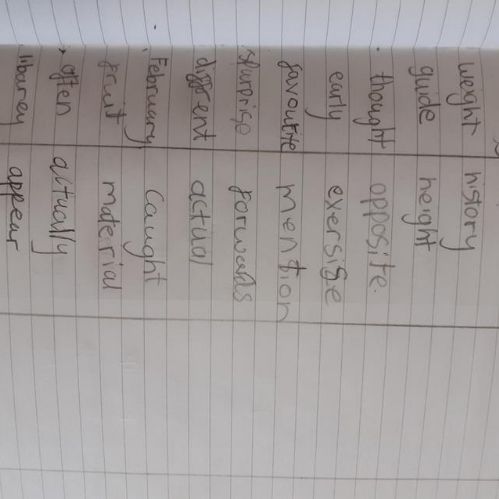 weight history
guide height
thought opposite.
early exersise
favoutite mention
suprprise forwards
different actual
February caught
fruit material
often actually
libarey appear